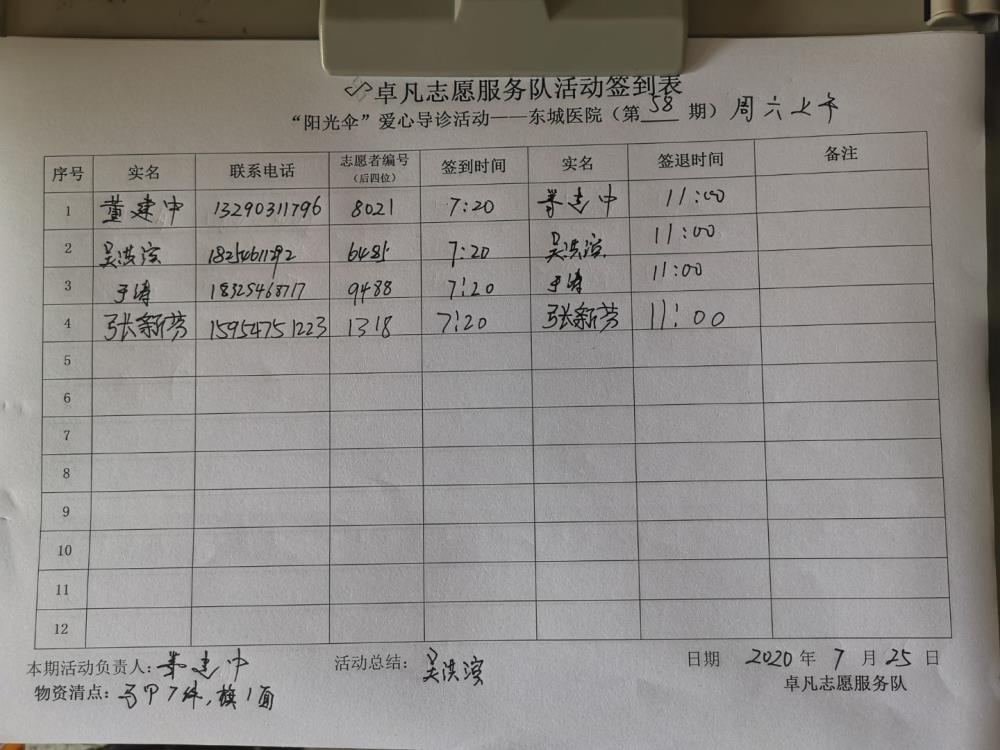 卓凡志愿服务队活动签到表
“阳光伞”爱心导诊活动——东城医院（第 58 期） 周六上午
序号 实名 联系电话 志愿者编号（后四位） 签到时间 实名 签退时间 备注
1 董建中 13290311796 8021 7:20 董建中 11:00
2 吴洪滨 18254611292 6485 7:20 吴洪滨 11:00
3 于涛 18325468717 9488 7:20 于涛 11:00
4 张新芳 15954751223 1318 7:20 张新芳 11:00
5
6
7
8
9
10
11
12
本期活动负责人：董建中 活动总结：吴洪滨 日期 2020 年 7 月 25 日
物资清点：马甲7件，旗1面 卓凡志愿服务队